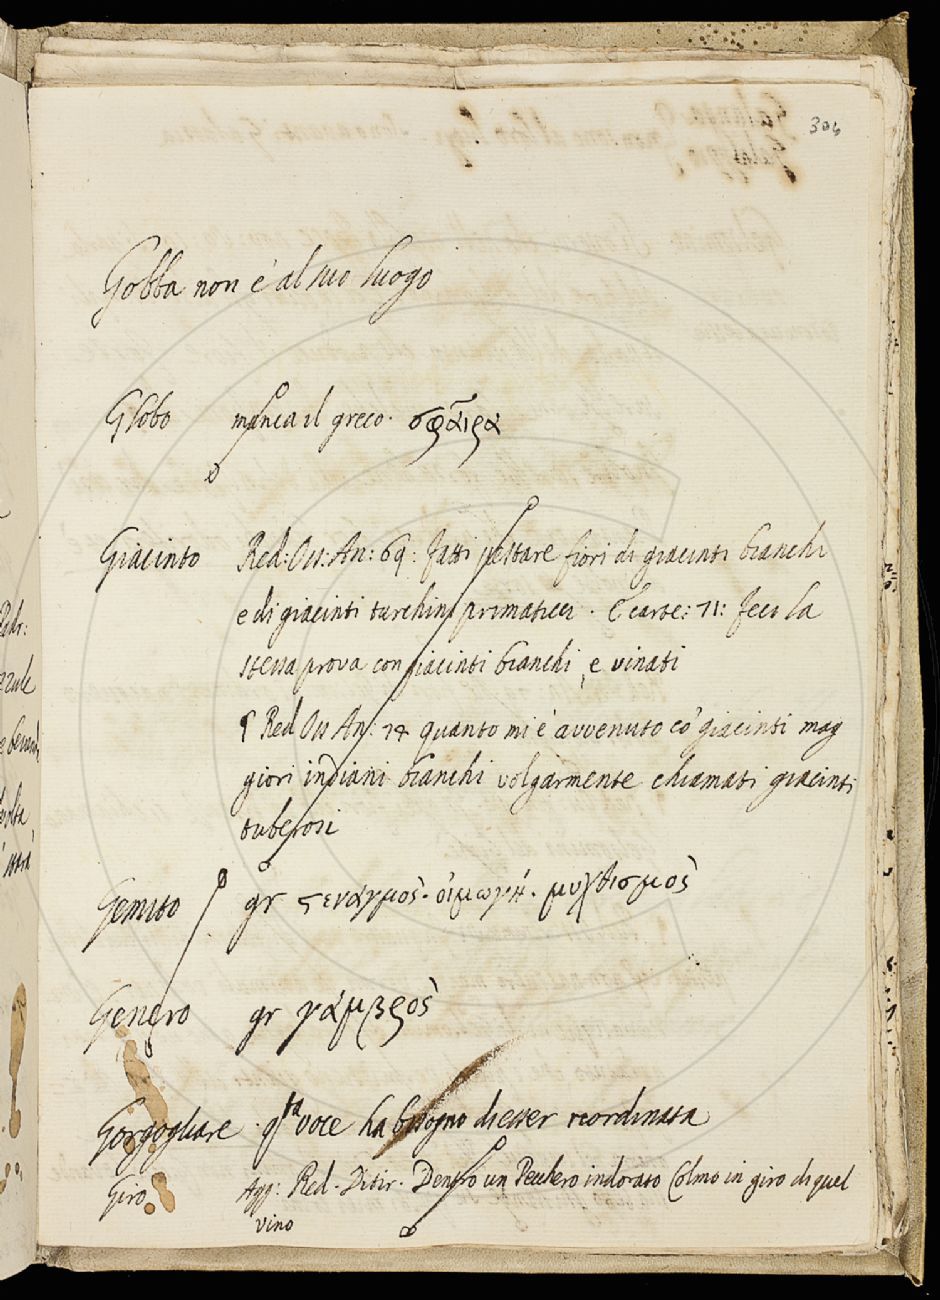 304
Gobba non è al suo luogo
Globo manca il greco. σφαῖρα
Giacinto Red: Oss: An: 69: fatti pestare fiori di giacinti bianchi
e di giacinti turchini primaticci. E carte: 71: feci la
stessa prova con giacinti bianchi, e vinati
¶ Red Oss An: 74 quanto mi è avvenuto co' giacinti mag
giori indiani bianchi volgarmente chiamati giacinti
tuberosi
Gemito gr στεναγμὸς. οἰμωγή. μυχθισμὸς
Genero gr γάμβρος
Gorgogliare qta voce ha bisogno di esser reordinata
Giro Agg: Red. Ditir. Dentro un Pecchero indorato Colmo in giro di quel
vino